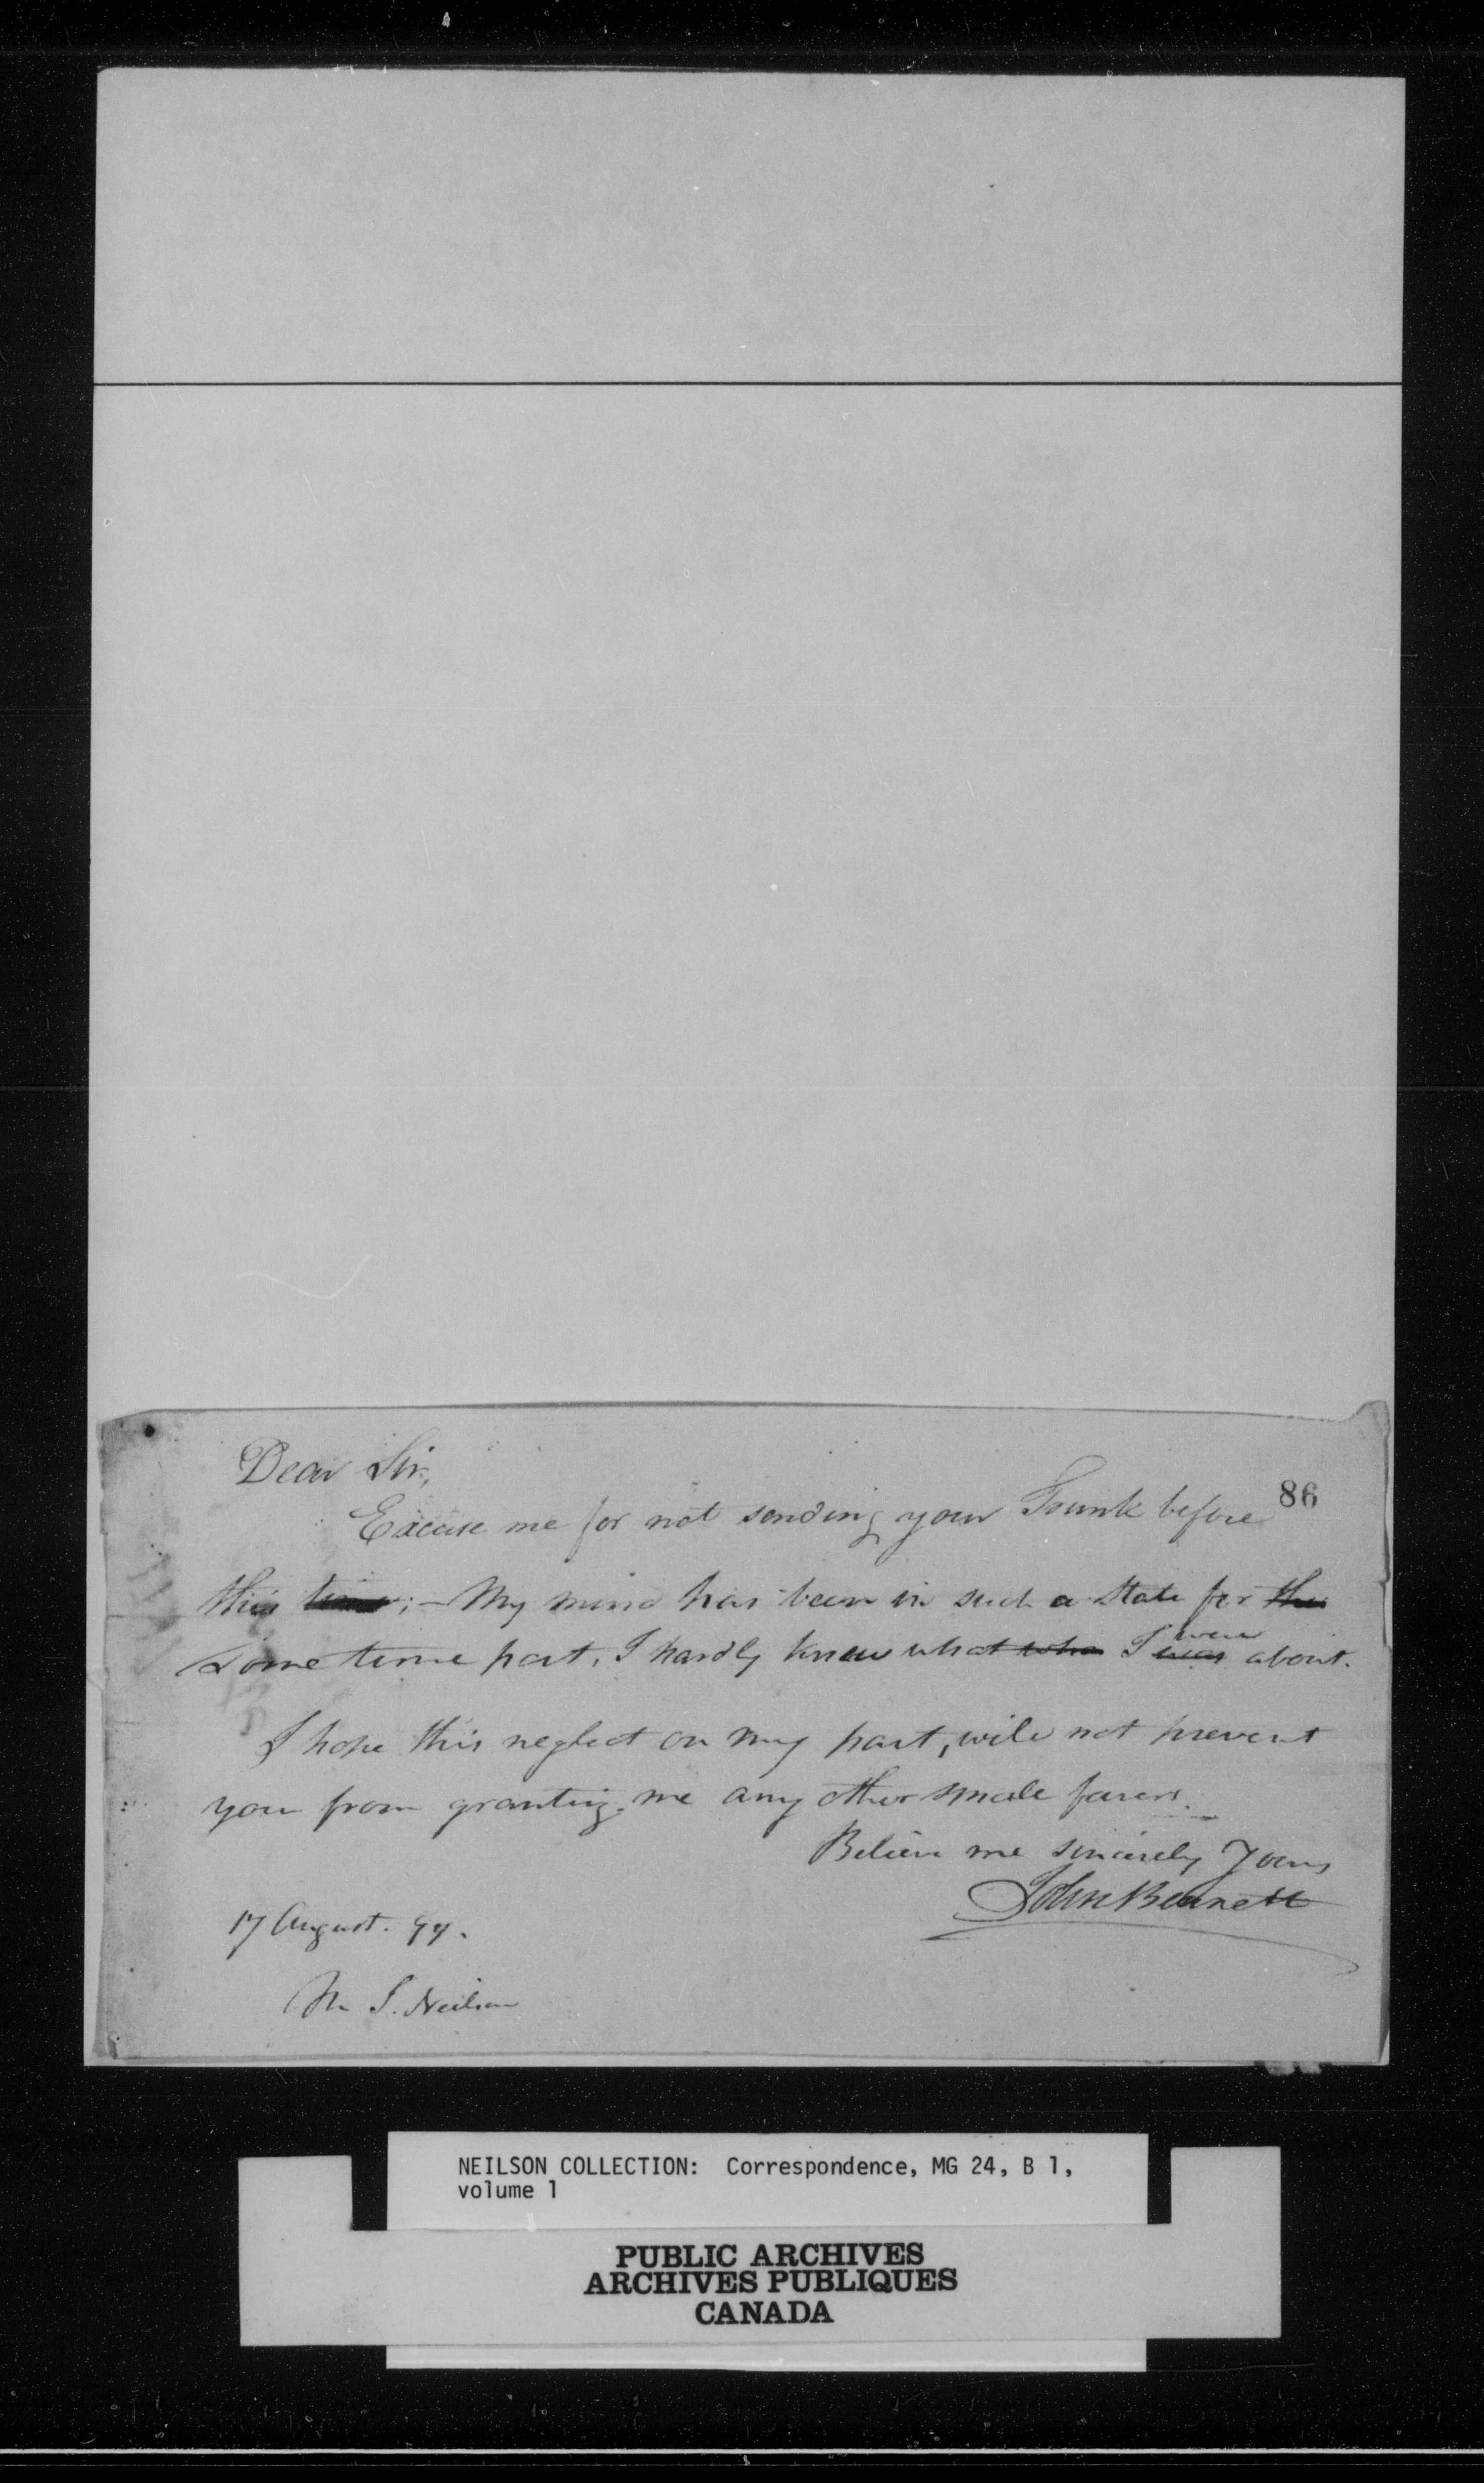 Dear Sir,
86
Excuse me for not sending your Trunk before
this time; — My mind has been in such a state for the
some time past, I hardly knew what who I was were about.
I hope this neglect on my part, will not prevent
you from granting me any other small favors.
Believe me sincerely Yours
John Bennett
17 August. 97.
Mr J. Neilson
NEILSON COLLECTION: Correspondence, MG 24, B 1,
volume 1
PUBLIC ARCHIVES
ARCHIVES PUBLIQUES
CANADA